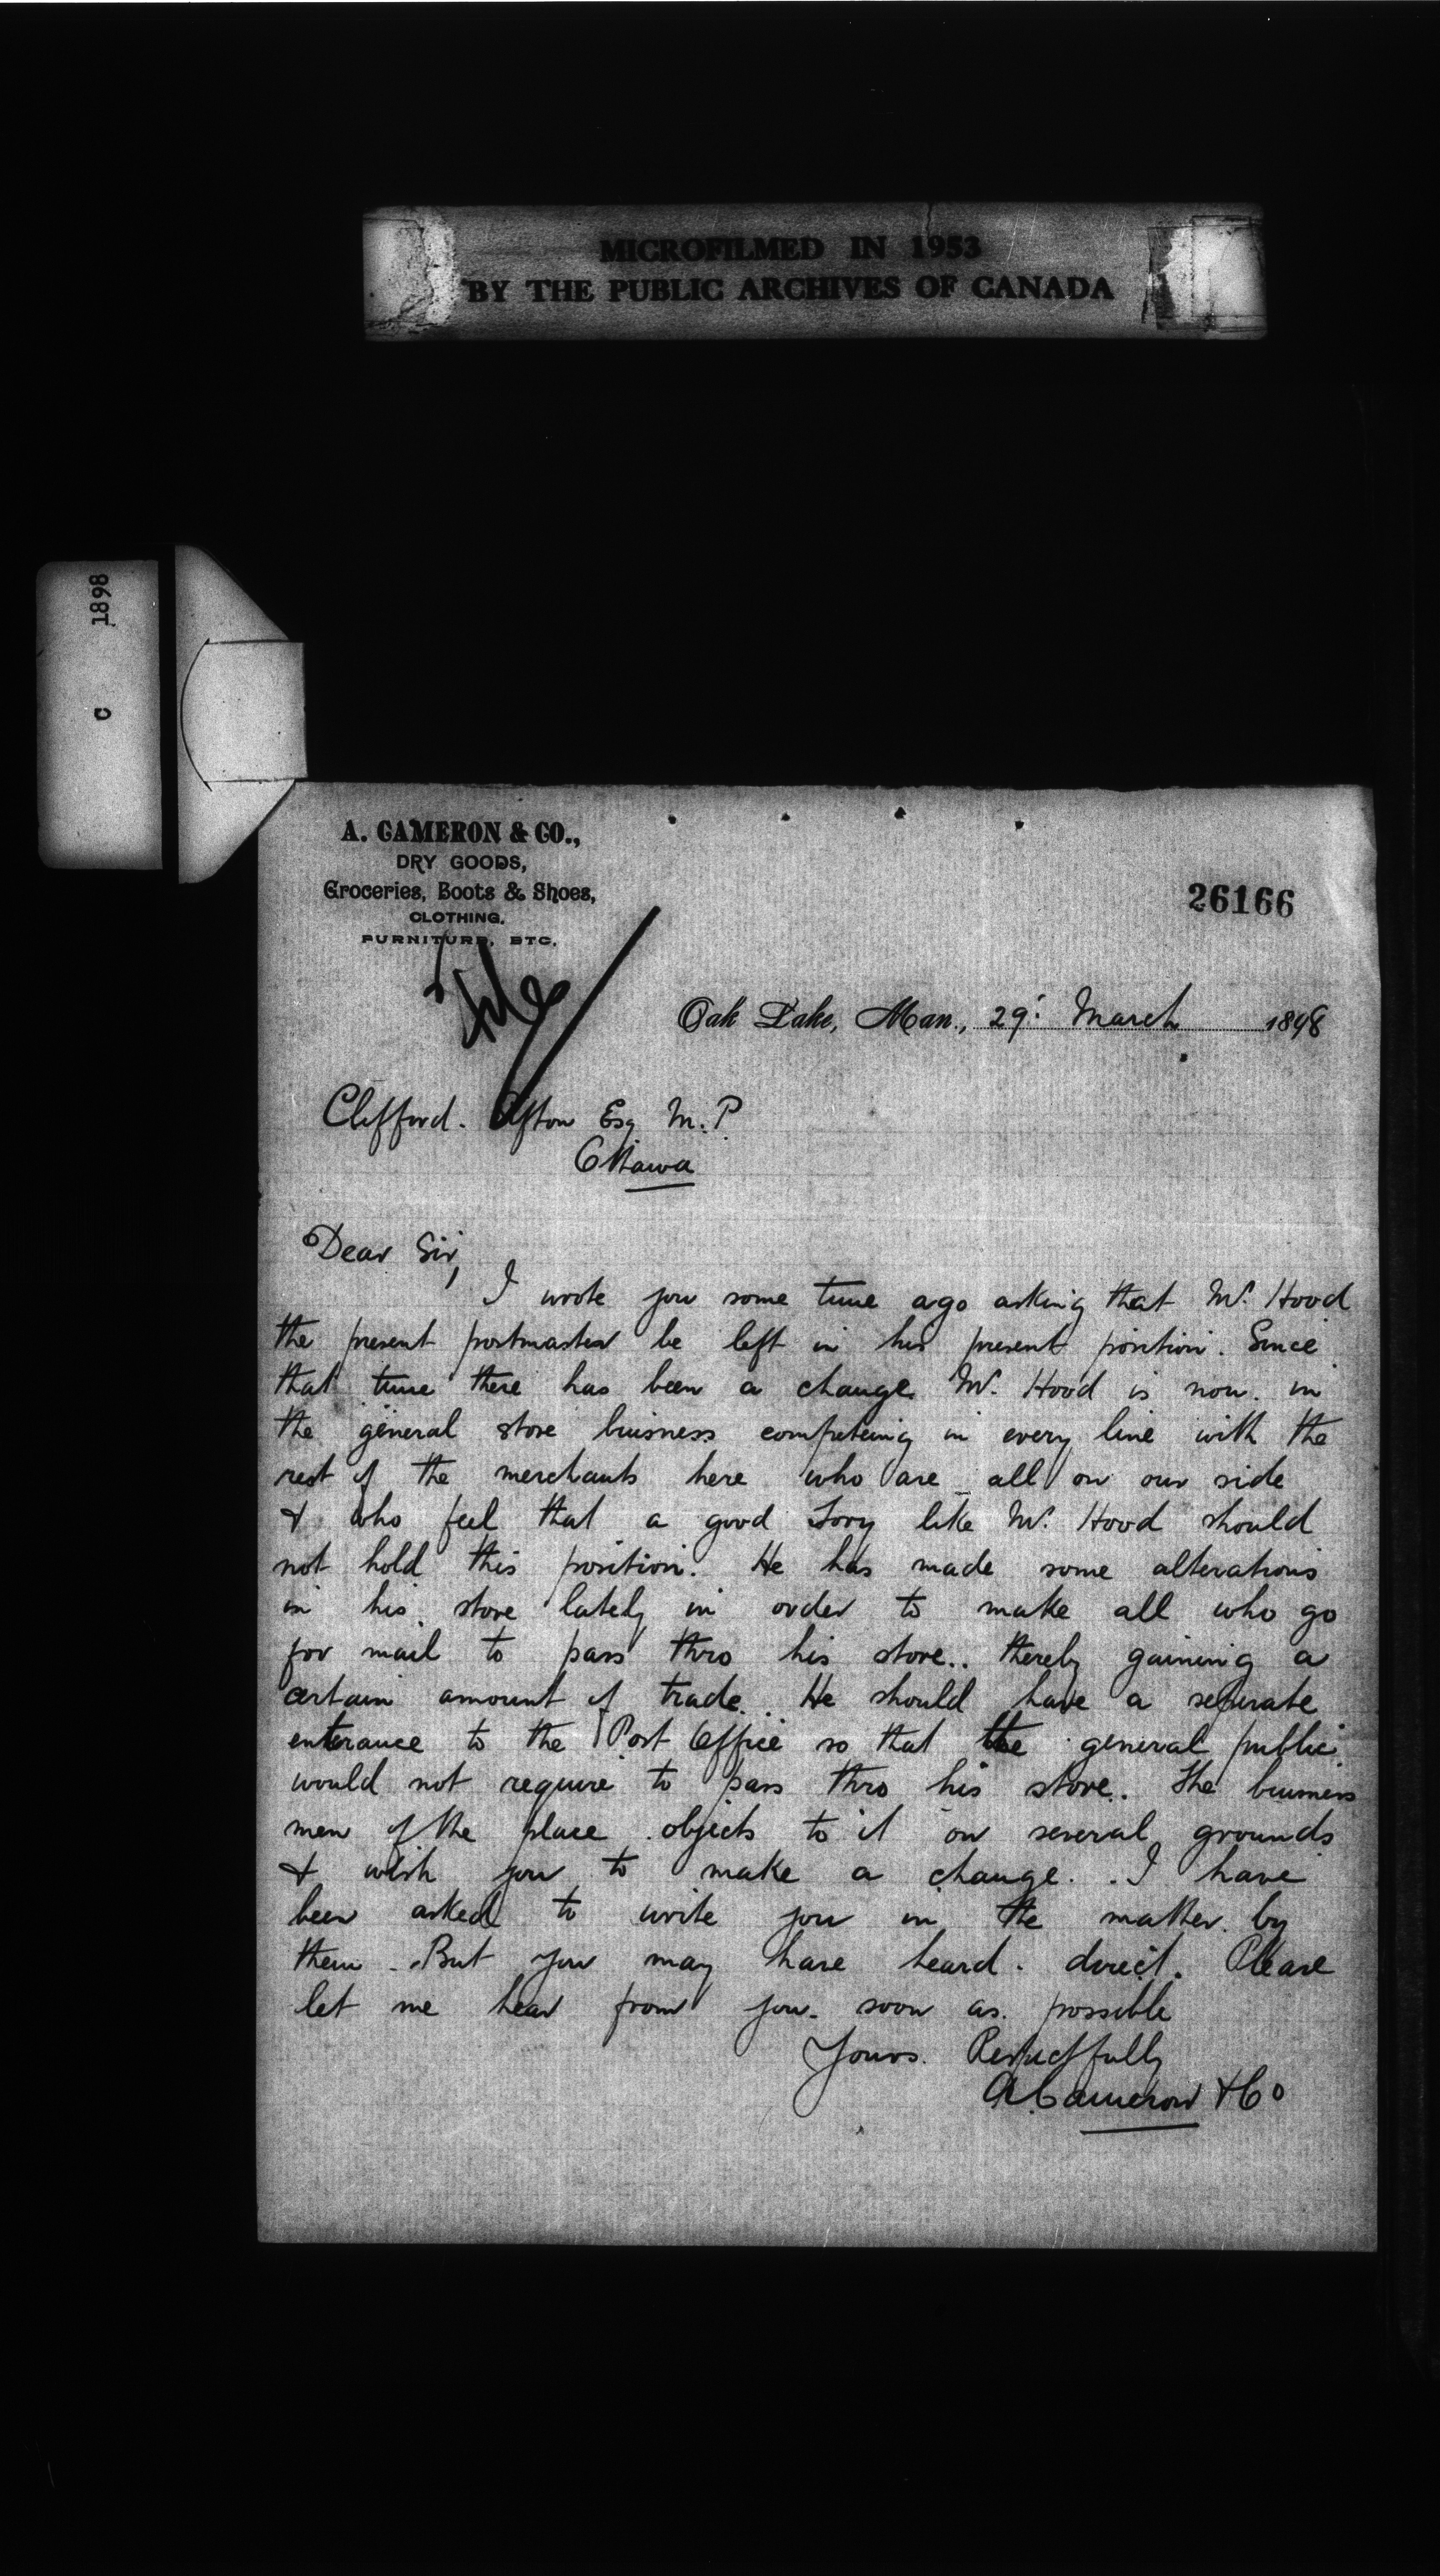 MICROFILMED IN 1953
BY THE PUBLIC ARCHIVES OF CANADA
C 1898
A. CAMERON & CO.,
DRY GOODS,
Groceries, Boots & Shoes,
CLOTHING,
FURNITURE, ETC.
26166
File
Oak Lake, Man., 29: March 1898
Clifford. Sifton Esq M.P
Ottawa
Dear Sir,
I wrote you some time ago asking that Mr. Hood
the present postmaster be left in his present position. Since
that time there has been a change Mr. Hood is now. in
the general store buisness competeing in every line with the
rest of the merchants here who are all on our side
& who feel that a good Tory like Mr. Hood should
not hold this position. He has made some alterations
in his store lately in order to make all who go
for mail to pass thro his store.. thereby gaining a
certain amount of trade.. He should have a seperate
enterance to the Post Office so that the general public
would not require to pass thro his store.. The buisness
men of the place objects to it on several grounds
& wish you to make a change. . I have
been asked to write you in the matter. by
them . . But you may have heard. direct. Please
let me hear from you. soon as. possible
Yours. Respectfully
A Cameron & Co